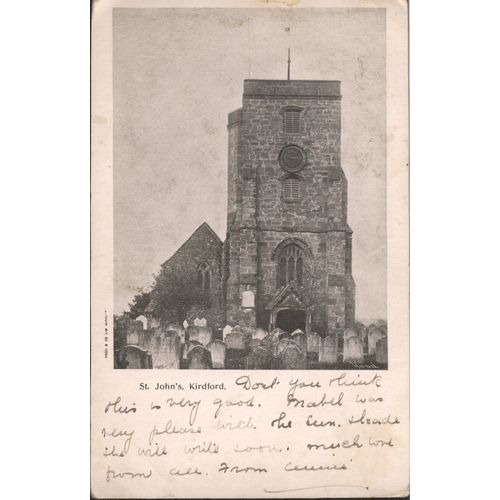 St. John's, Kirdford. Dont you think
this is very good. Mabel was
very please with the Sun. Shade
she will write soon. much love
from all. From